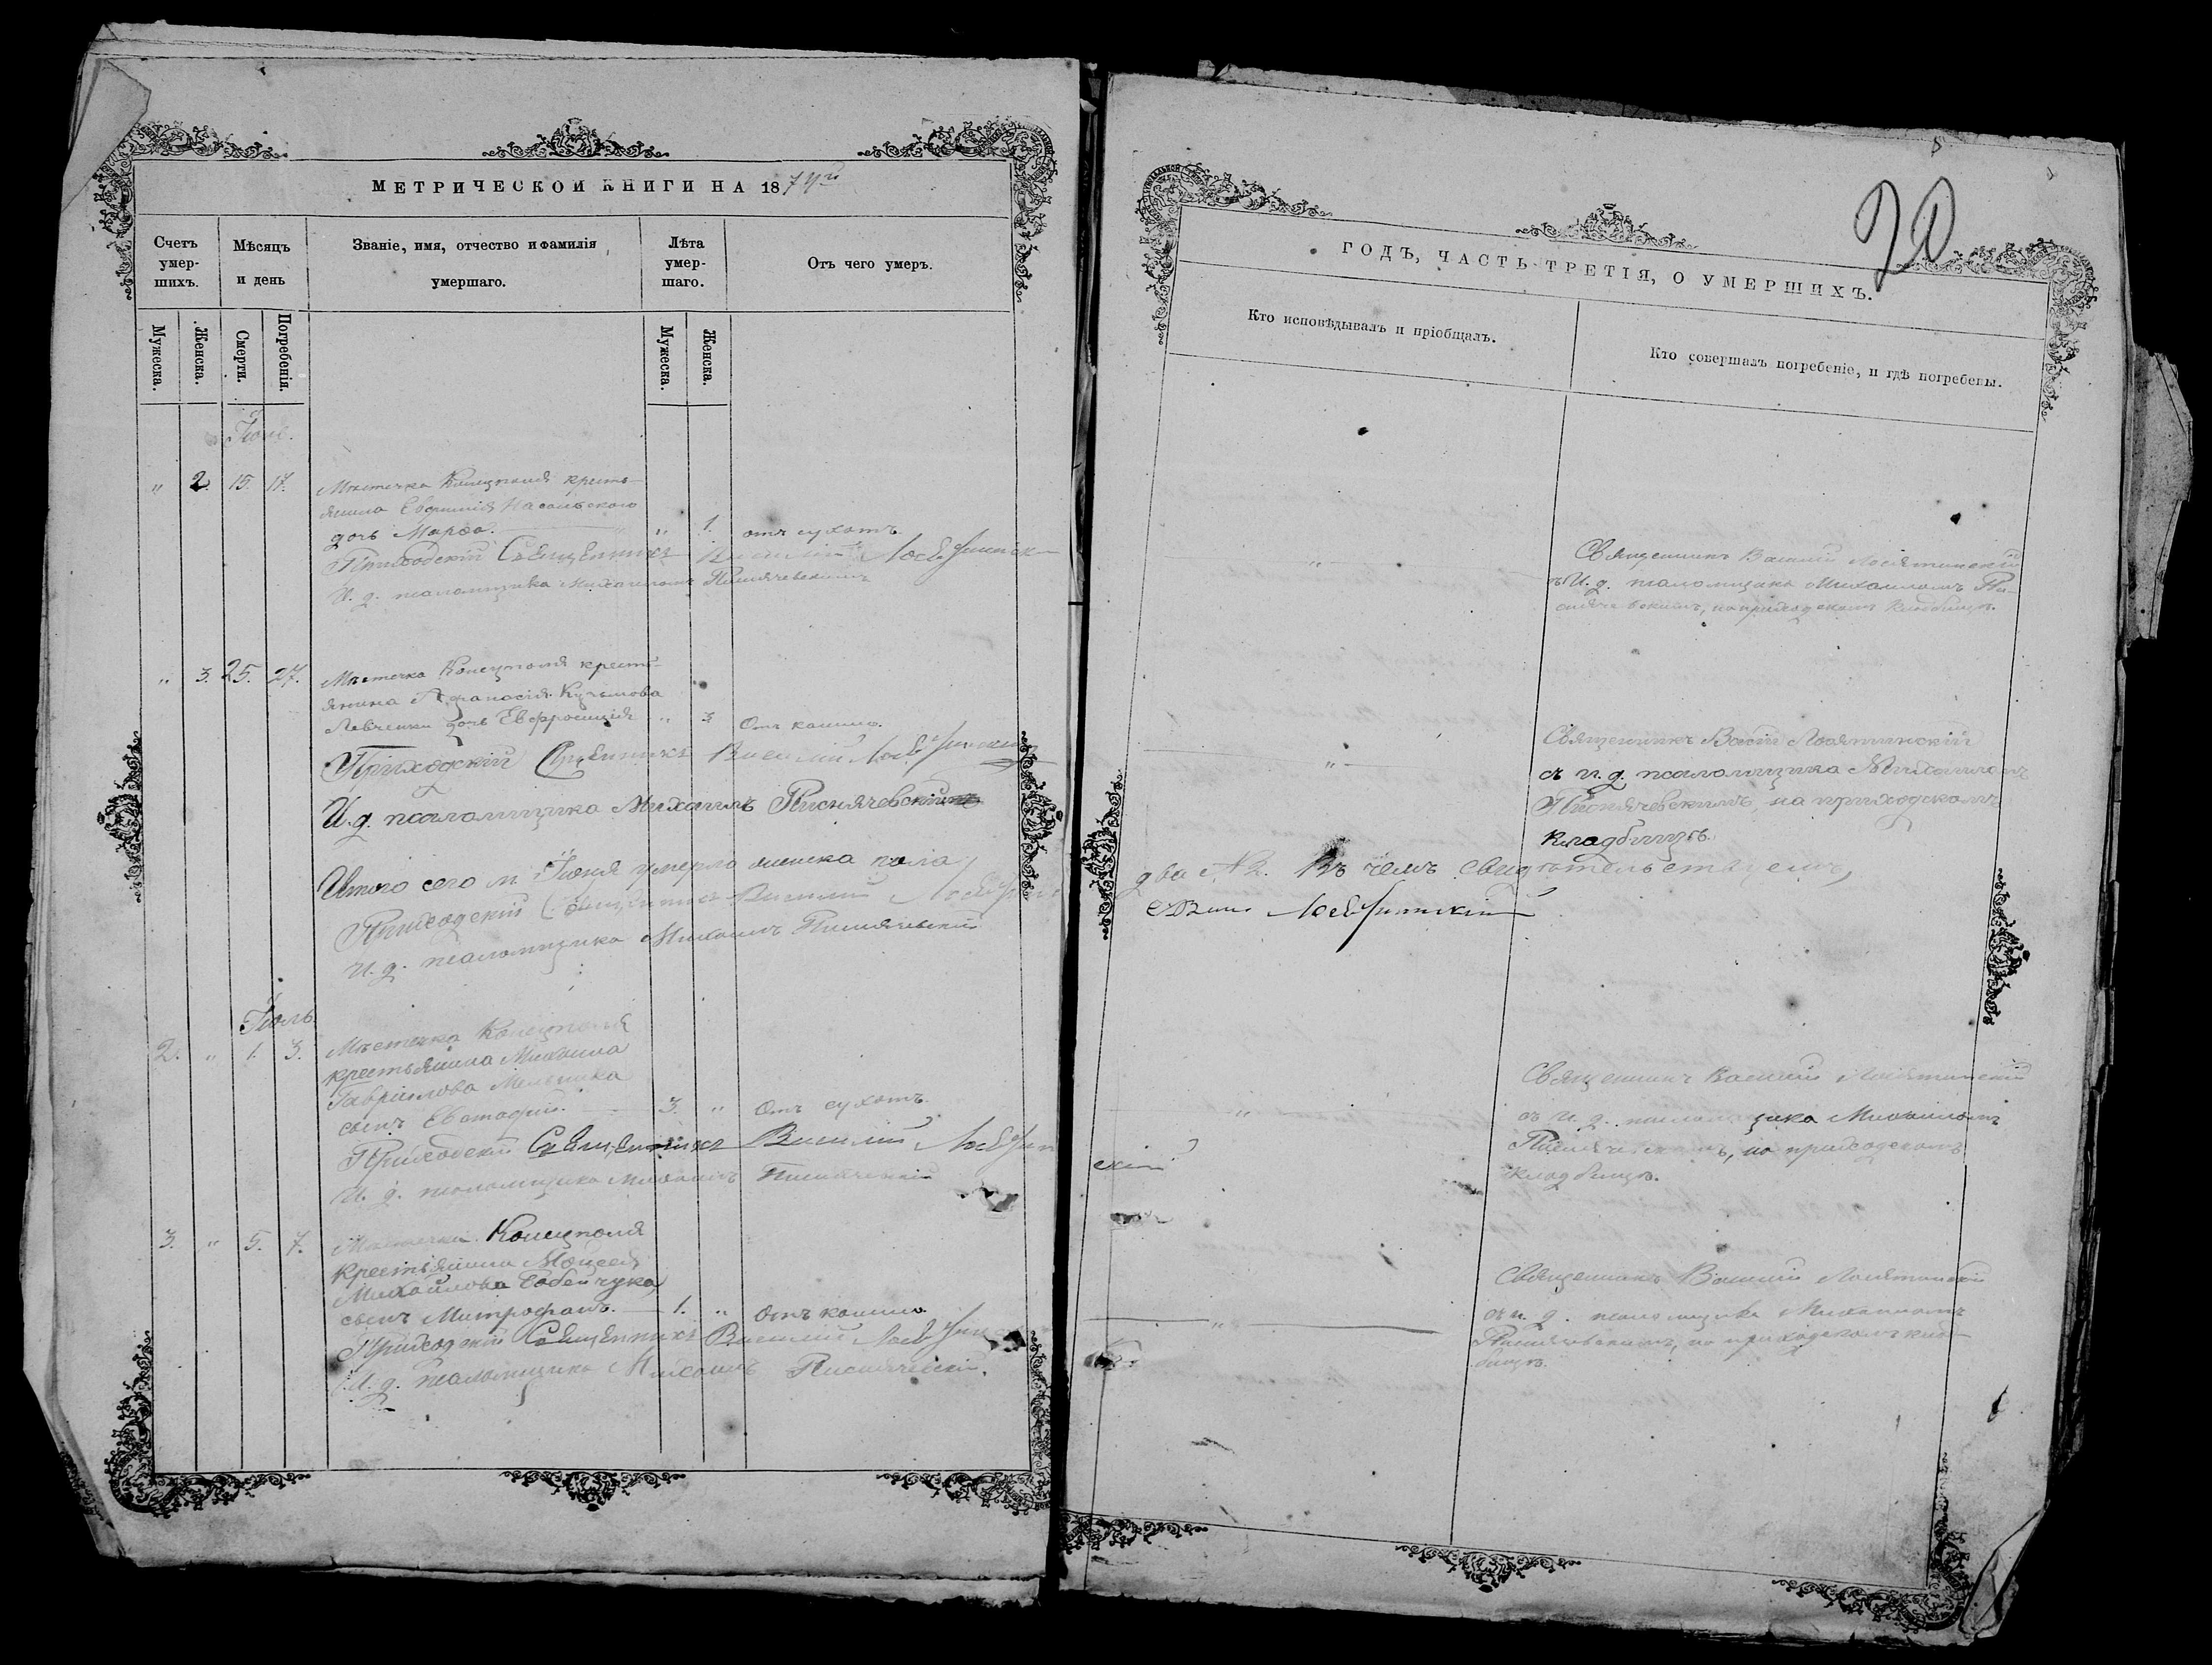 МЕТРИЧЕСКОЙ КНИГИ НА 187
Счетъ умер-шихъ.
Мѣсяцъ и день
Званіе, имя, отчество и фамилія умершаго.
Лѣта умер-шаго.
Отъ чего умеръ.
Мужеска.
Женска.
Смерти.
Погребенія.
Мужеска.
Женска.
Іюнь.
„ 2. 15. 17.
Мѣстечка Конецполя кресть-
янина Евфимія
дочь Марфа. „ 1. отъ сухотъ.
Приходскій Священникъ Василій Лосятинскій
И. д. псаломщика Михаилъ Писнячевскій
„ 3. 25. 27.
Мѣстечка Конецполя кресть-
янина Афанасія Кузьмова
Левченка дочь Евфросинія „ 3 Отъ кашлю.
Приходскій Священникъ Василій Лосятинскій
И. д. псаломщика Михаилъ Писнячевскій
Итого сего м. Іюня умерло женска пола
Приходскій Священникъ Василій
И. д. псаломщика Михаилъ Писнячевскій
Іюль.
2. „ 1. 3.
Мѣстечка Конецполя
крестьянина Михаила
Гавріилова Мельника
сынъ Евстафій. 3. „ Отъ сухотъ.
Приходскій Священникъ Василій Лосятин
И. д. псаломщика Михаилъ Писнячевскій
3. „ 5. 7.
Мѣстечка Конецполя
крестьянина Моисея
Михайлова
сынъ Митрофанъ. 1. „ Отъ кашлю
Приходскій Священникъ Василій
И. д. псаломщика Михаилъ Писнячевскій.
20
ГОДЪ, ЧАСТЬ ТРЕТІЯ, О УМЕРШИХЪ.
Кто исповѣдывалъ и пріобщалъ.
Кто совершалъ погребеніе, и гдѣ погребены.
„
Священникъ Василій Лосятинскій
съ И. д. псаломщика Михаиломъ Пи-
снячевскимъ, на приходскомъ кладбищѣ.
„
Священникъ Васілій Лосятинскій
съ и. д. псаломщика Михаиломъ
Писнячевскимъ, на приходскомъ
кладбищѣ.
два № 2. Въ чемъ свидѣтельствуемъ,
Лосятинскій
„
Священникъ Василій Лосятинскій
съ И. д. псаломщика Михаиломъ
Писнячевскимъ, на приходскомъ
кладбищѣ.
скій
„
Священникъ Василій Лосятинскій
съ и. д. псаломщика Михаиломъ
Писнячевскимъ, на приходскомъ клад-
бищѣ.